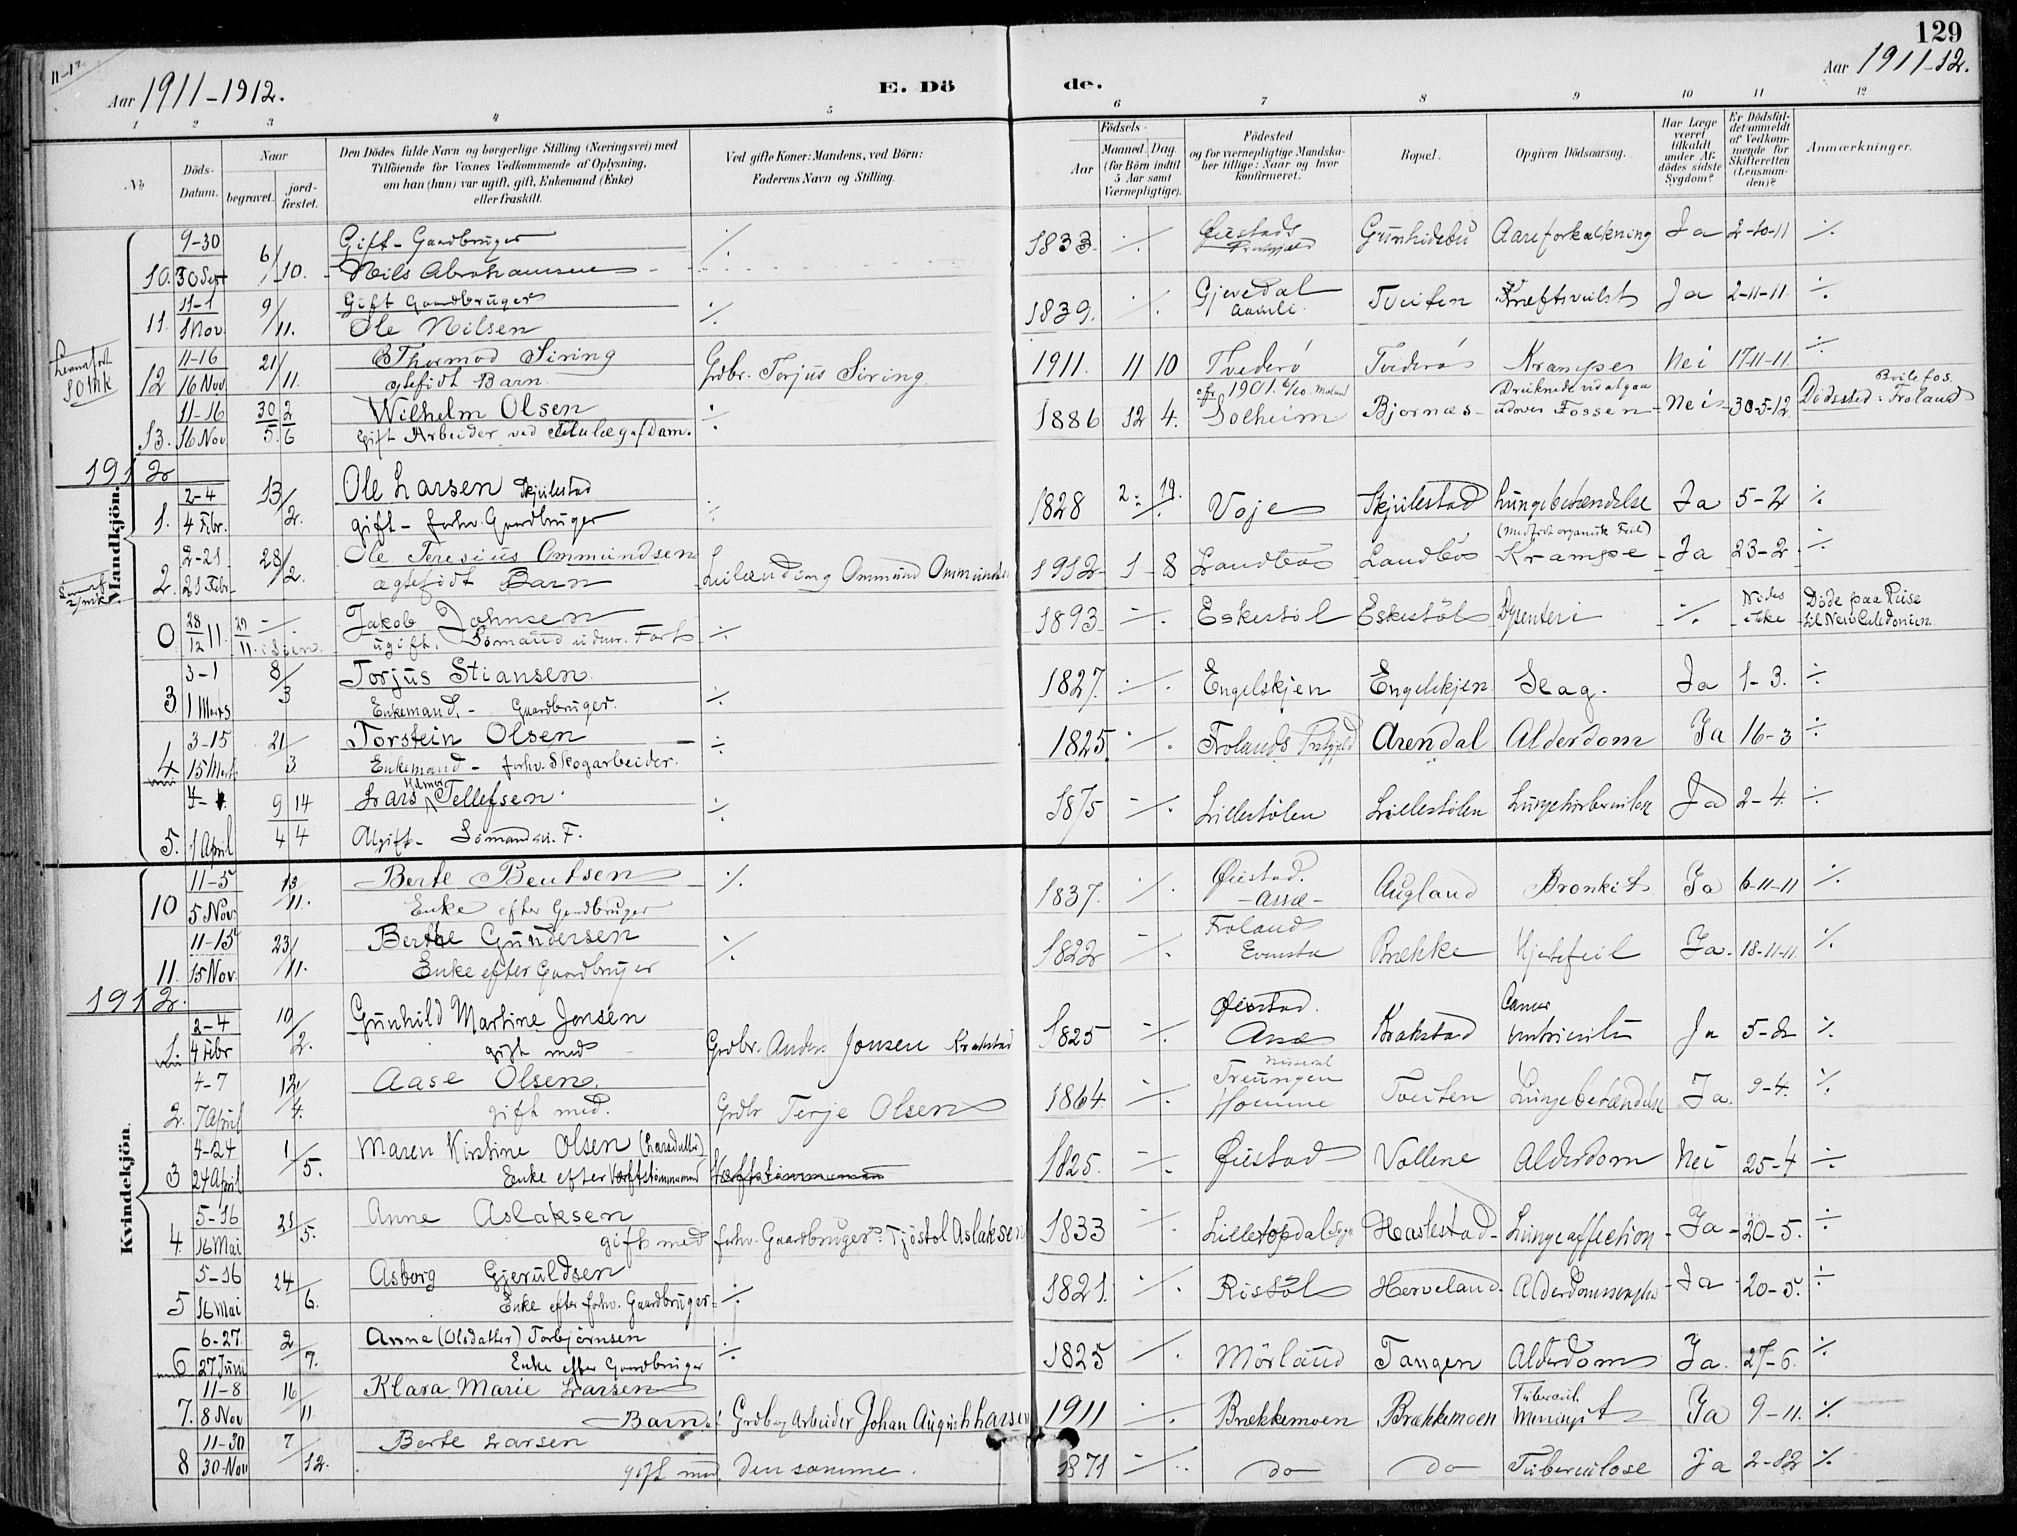 129
11-12
Aar 1911-1912.
E. Dö
de.
Aar 1911-12.
1 2 3 4 5 6 7 8 9 10 11 12
No
Döds-Datum.
Naar
begravet.
jord-fæstet.
Den Dödes fulde Navn og borgerlige Stilling (Næringsvei) med
Tilföiende for Voxnes Vedkommende af Oplysning,
om han (hun) var ugift, gift, Enkemand (Enke)
eller fraskilt.
Ved gifte Koner: Mandens, ved Börn:
Faderens Navn og Stilling.
Födsels-
Aar
Maaned. Dag
(for Börn indtil
5 Aar samt
Værnepligtige).
Födested
og for værnepligtige Mandska-
ber tillige: Naar og hvor
konfirmeret.
Bopæl.
Opgiven Dödsaarsag.
Har Læge
været
tilkaldt
under Af-
dödes sidste
Sygdom?
Er Dödsfal-
det anmeldt
af Vedkom-
mende for
Skifteretten
(Lensman-
den)?
Anmærkninger.
Mandkjön.
9-30 Gift - Gaardbruger ./.
10. 30 Sept 6/10. Nils Abrahamsen 1833 ./. Øiestads Præstgjæld Aareforkalkning Ja 2-10-11 ./.
11-1 Gift Gaardbruger
11. 1 Nov 9/11. Ole Nilsen ./. 1839. ./. Gjevedal Aamli. Tveiten Kræftsvulst Ja 2-11-11. ./.
11-16 Thormod Siring
12 16 Nov 21/11. ægtefödt Barn. Grdbr. Torjus Siring. 1911. 11 10 Tvederö Tvederö Kramper Nei 17-11-11. ./.
50 mk
11-16 30/5. 2/6 Wilhelm Olsen ./. 1901. 6/10 Moland Druknede ved at gaa
13. 16 Nov gift Arbeider ved Dam. 1886 12 4. Solheim Bjornæs - udover Fossen - Nei - 30-5-12. Dödssted: Froland
1912
2-4 13/2. Ole Larsen Skjulestad
1. 4 Febr. gift - forhv. Gaardbruger ./. 1828 2. 19. Voje Skjulestad Lungebetændelse Ja 5-2 ./.
2-21 28/2. Ole Teresius Ommundsen (Medfödt organisk Feil)
2. 21 Febr. ægtefödt Barn Leilænding Ommund Ommundsen 1912 1 8 Landbö Landbö Krampe - Ja 23-2 ./.
0 28/12 11. 29/11. i Söen. Jakob Johnsen
ugift. Sömand i udenr. Fart ./. 1893 ./. Eskestöl Eskestöl Dysenteri ./. ikke Döde paa Reise
til New Caledonien.
3-1 8/3 Torjus Stiansen
3 1 Marts Enkemand. - Gaardbruger. ./. 1827. ./. Engelskjen Engelskjen Slag. Ja 1-3. ./.
3-15 21/3 Torstein Olsen
4 15 Marts Enkemand - forhv. Skogarbeider. ./. 1825. ./. Frolands Arendal Alderdom Ja 16-3 ./.
9/4 14/4 Lars Tellefsen.
5. 1 April Ugift - Sömand u. F. ./. 1875 ./. Lillestölen Lillestölen Lungetuberkulose Ja 2-4. ./.
Kvindekjön.
11-5 13/11. Berte Bentsen ./.
10 5 Nov. Enke efter Gaardbruger 1837. ./. Øiestad. - Assæ - Augland Bronkit Ja 6-11-11 ./.
11-15 23/11. Berthe Gundersen
11. 15 Nov. Enke efter Gaardbruger ./. 1822 ./. Froland Evensta Brække Hjertefeil Ja. 18-11-11. ./.
1912.
2-4 10/2. Gunhild Martine Jonsen
1. 4 Febr gift med Grdbr. Anders Jonsen Krakstad 1825 ./. Øiestad. Assæ Krakstad Cancer ventriculi Ja 5-2 ./.
4-7 12/4. Aase Olsen.
2. 7 April gift med. Grdbr Terje Olsen 1864. ./. Nissedal Treungen Homme Tveiten Lungebetændelse Ja. 9-4. ./.
4-24 1/5. Maren Kirstine Olsen (Larsdatter)
3 24 April Enke efter Værftstømmermand 1825. ./. Øiestad Vollene Alderdom Nei 25-4 ./.
5-16 21/5. Anne Aslaksen
4. 16 Mai gift med forhv. Gaardbruger Tjöstol Aslaksen 1833 ./. Lilletopdal Haslestad - Lungeaffection - Ja - 20-5. ./.
5-16 24/6. Asborg Gjeruldsen
5 16 Mai Enke efter forhv. Gaardbruger ./. 1821. ./. Ristöl Herveland. Ja 20-5. ./.
6-27. 2/7. Anna (Olsdatter) Torbjörnsen
6 27 Juni Enke efter Gaardbruger ./. 1825 ./. Mörland Tangen Alderdom Ja. 27-6. ./.
11-8 16/11. Klara Marie Larsen
7. 8 Nov Barn af Grdbr og Arbeider Johan August Larsen 1911 ./. Brækkemoen Brækkemoen Tubercul. Meningit Ja 9-11. ./.
11-30 7/12. Berte Larsen
8 30 Nov gift med den samme. 1871 ./. do do Tuberculose Ja 2-12 ./.